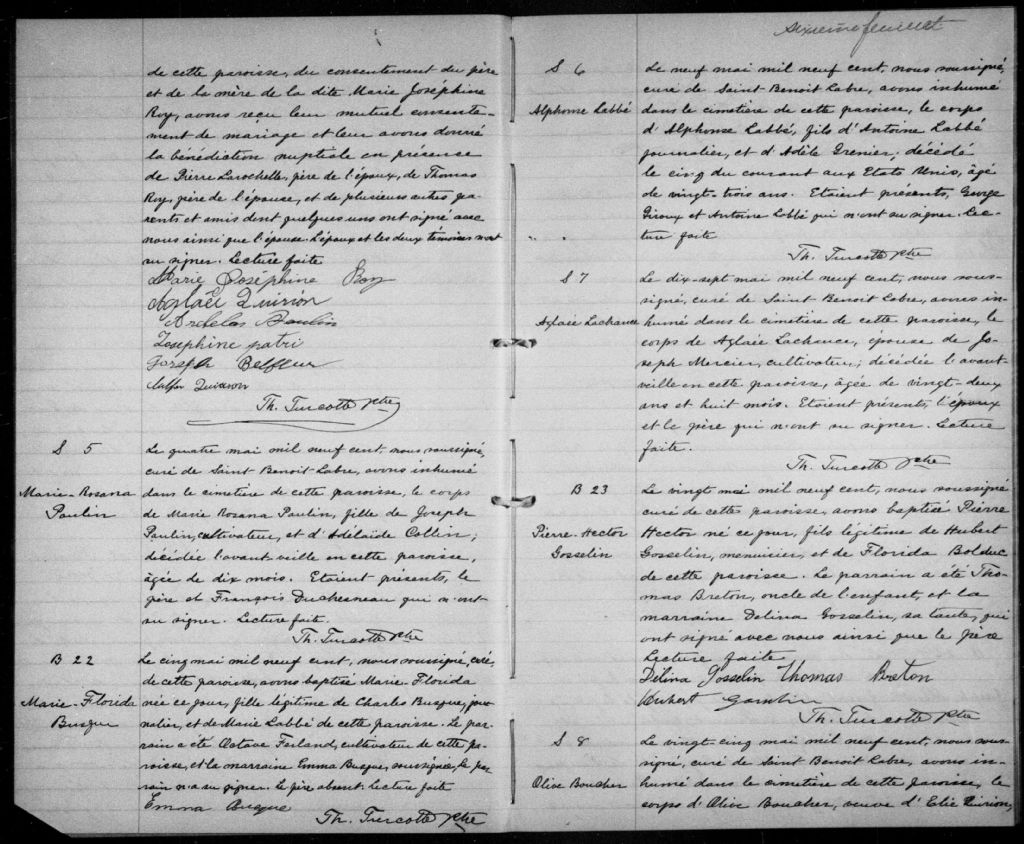 de cette paroisse, du consentement du père
et de la mère de la dite Marie Joséphine
Roy, avons reçu leur mutuel consente-
ment de mariage et leur avons donné
la bénédiction nuptiale en présence
de Pierre Larochelle, père de l'époux, de Thomas
Roy, père de l'épouse, et de plusieurs autres pa-
rents et amis dont quelques uns ont signé avec
nous ainsi que l'épouse. L'époux et les deux témoins n'ont
su signer. Lecture faite
Marie Joséphine Roy
Aglaée Quirion
Poulin
Josephine patri
Joseph
Quirion
Th. Turcotte Ptre
S 5
Marie-Rosana
Poulin
Le quatre mai mil neuf cent, nous soussigné,
curé de Saint Benoit-Labre, avons inhumé
dans le cimetière de cette paroisse, le corps
de Marie Rosana Poulin, fille de Joseph
Poulin, cultivateur, et d'Adélaïde Collin;
décédée l'avant-veille en cette paroisse,
âgée de dix mois. Etaient présents, le
père et François Duchesneau qui n'ont
su signer. Lecture faite.
Th. Turcotte Ptre
B 22
Marie-Florida
Busque
Le cinq mai mil neuf cent, nous soussigné curé,
de cette paroisse, avons baptisé Marie Florida
née ce jour, fille légitime de Charles Busque, jour-
nalier, et de Marie Labbé de cette paroisse. Le par-
rain a été Octave Ferland, cultivateur de cette pa-
roisse, et la marraine Emma Busque, soussignée, le par-
rain n'a su signer. Le père absent. Lecture faite
Emma Busque
Th. Turcotte Ptre
Sixième feuillet
S 6
Alphonse Labbé
Le neuf mai mil neuf cent, nous soussigné,
curé de Saint-Benoit Labre, avons inhumé
dans le cimetière de cette paroisse, le corps
d'Alphonse Labbé, fils d'Antoine Labbé
journalier, et d'Adèle Grenier; décédé
le cinq du courant aux Etats Unis, âgé
de vingt-trois ans. Etaient présents, George
Giroux et Antoine Labbé qui n'ont su signer. Lec-
ture faite
Th. Turcotte Ptre
S 7
Aglaée Lachance
Le dix-sept mai mil neuf cent, nous sous-
signé, curé de Saint-Benoit Labre, avons in-
humé dans le cimetière de cette paroisse, le
corps de Aglaée Lachance, épouse de Jo-
seph Mercier, cultivateur; décédée l'avant
veille en cette paroisse, âgée de vingt-deux
ans et huit mois. Etaient présents, l'époux
et le père qui n'ont su signer. Lecture
faite.
Th. Turcotte Ptre
B 23
Pierre-Hector
Gosselin
Le vingt mai mil neuf cent, nous soussigné
curé de cette paroisse, avons baptisé Pierre
Hector né ce jour, fils légitime de Hubert
Gosselin, menuisier, et de Florida Bolduc
de cette paroisse. Le parrain a été Tho-
mas Breton, oncle de l'enfant, et la
marraine Delina Gosselin, sa tante, qui
ont signé avec nous ainsi que le père
Lecture faite
Delina Gosselin Thomas Breton
Hubert Gosselin
Th. Turcotte Ptre
S 8
Olive Boucher
Le vingt-cinq mai mil neuf cent, nous sous-
signé, curé de Saint Benoit Labre, avons in-
humé dans le cimetière de cette paroisse, le
corps d'Olive Boucher, veuve d'Elie Quirion,